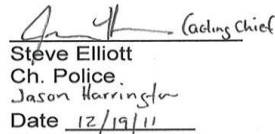 (acting Chief
Steve Elliott
Ch. Police
Jason Harrington
Date 12/19/11